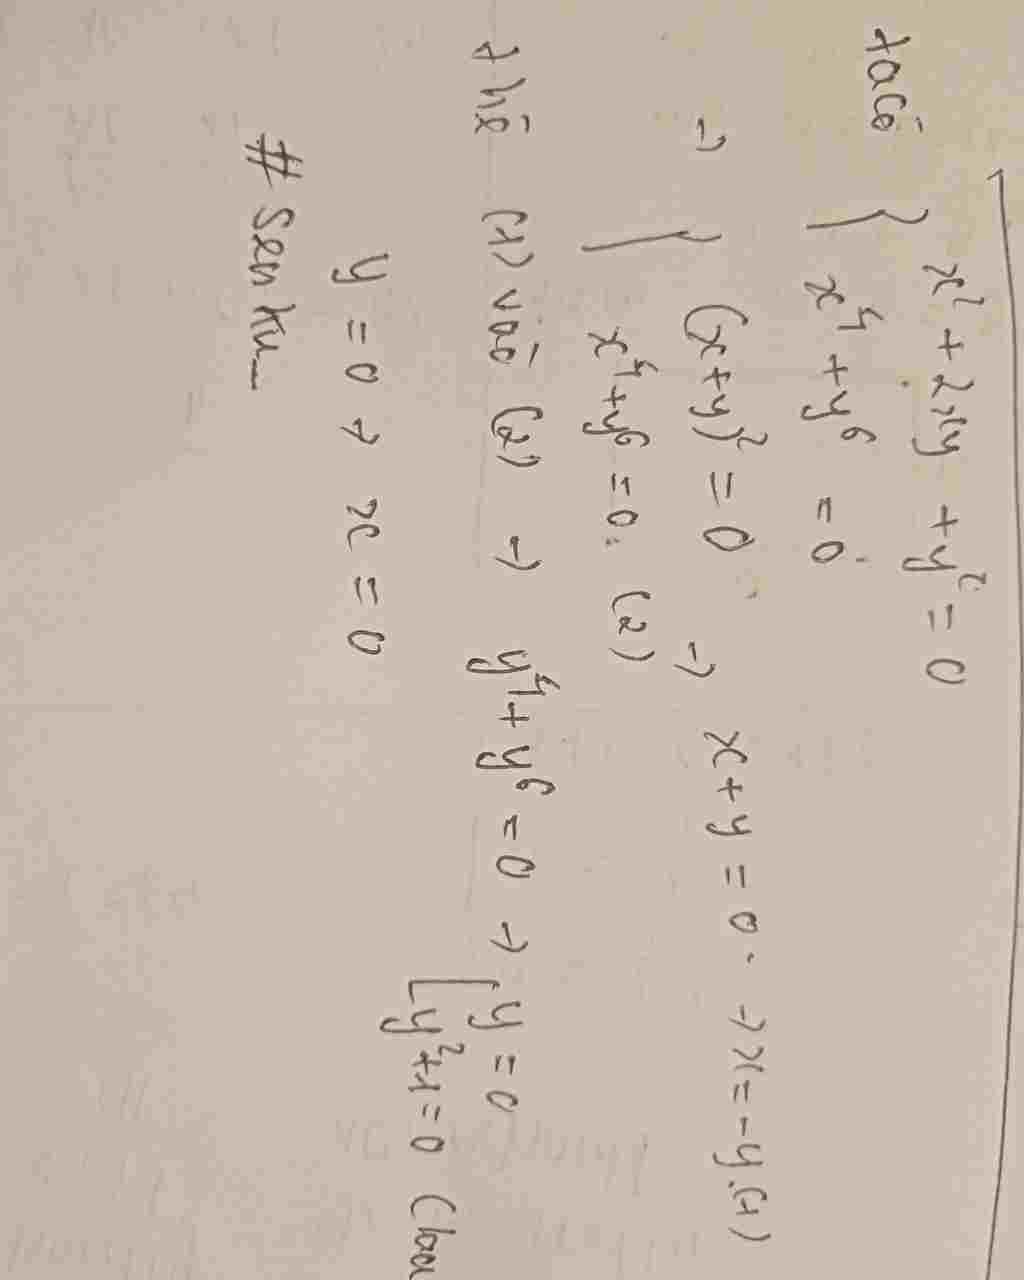 ta có { x² + 2xy + y² = 0
x⁴ + y⁶ = 0
→ { (x+y)² = 0 → x + y = 0 → x = -y (1)
x⁴ + y⁶ = 0 (2)
thế (1) vào (2) → y⁴ + y⁶ = 0 → [ y = 0
y² + 1 = 0 (loại
y = 0 → x = 0
# Senku_